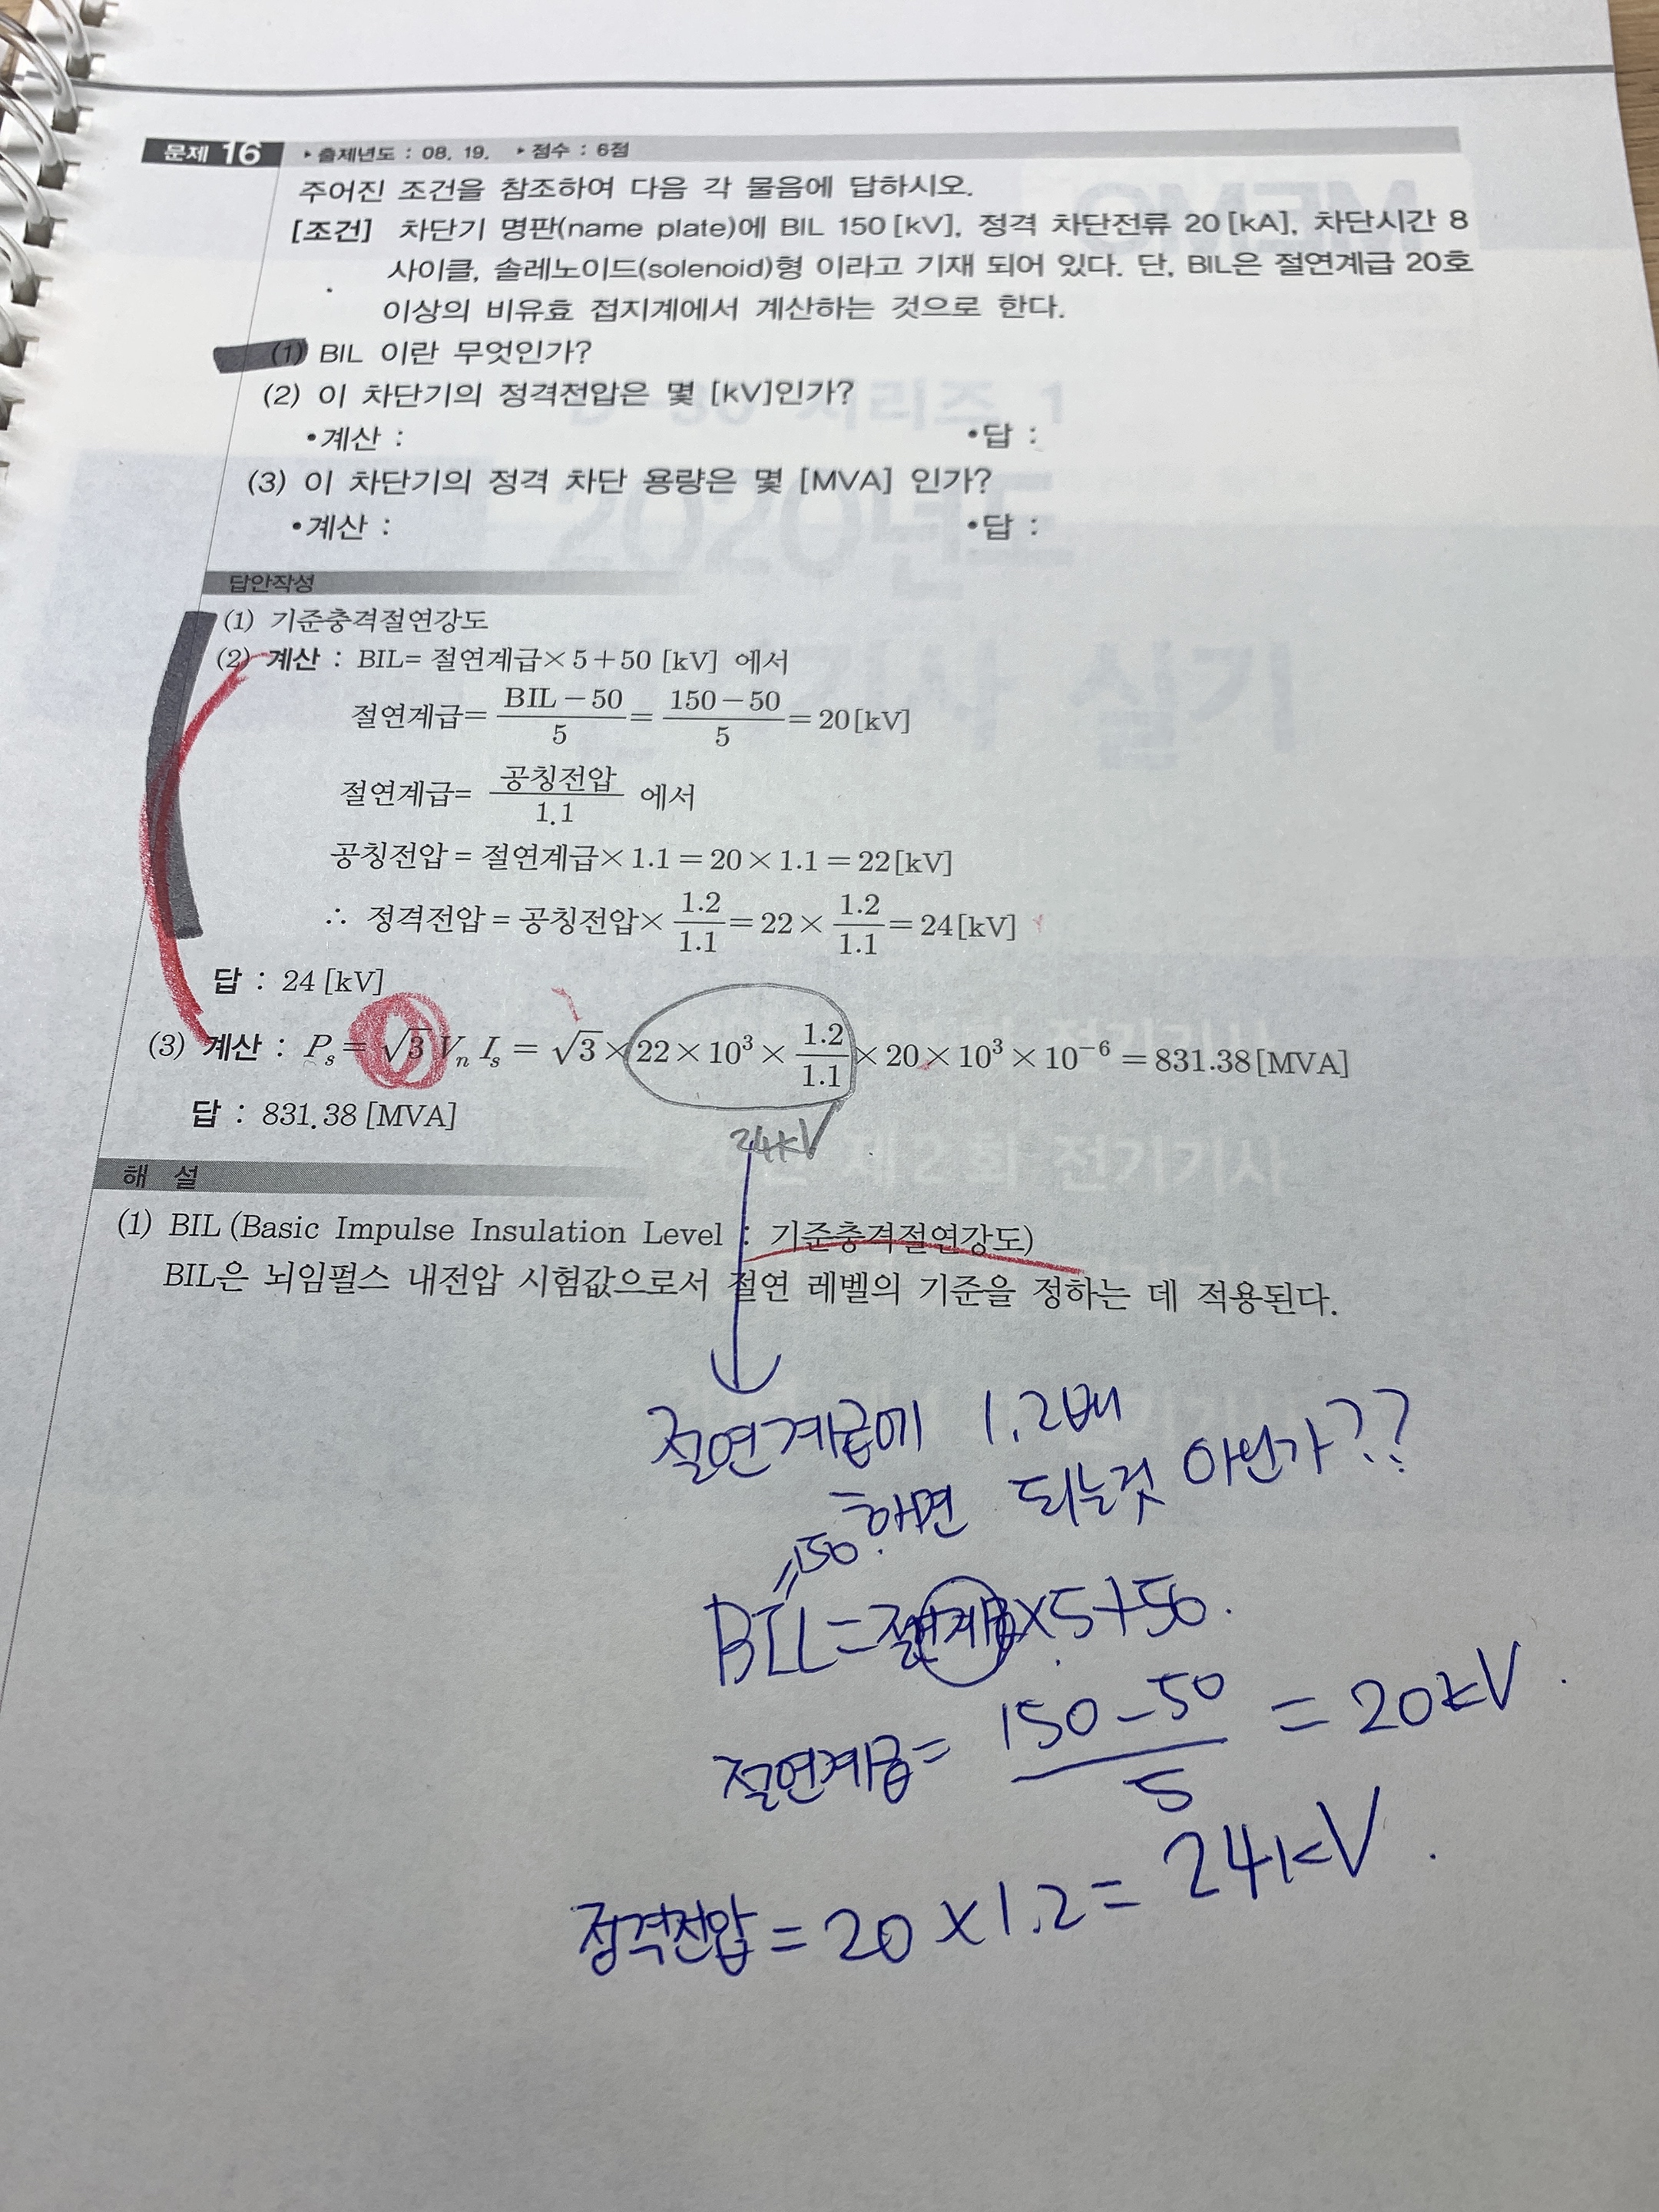 문제 16 ▸출제년도 : 08. 19. ▸점수 : 6점
주어진 조건을 참조하여 다음 각 물음에 답하시오.
[조건] 차단기 명판(name plate)에 BIL 150[kV], 정격 차단전류 20[kA], 차단시간 8
사이클, 솔레노이드(solenoid)형 이라고 기재 되어 있다. 단, BIL은 절연계급 20호
이상의 비유효 접지계에서 계산하는 것으로 한다.
(1) BIL 이란 무엇인가?
(2) 이 차단기의 정격전압은 몇 [kV]인가?
•계산 : •답 :
(3) 이 차단기의 정격 차단 용량은 몇 [MVA] 인가?
•계산 : •답 :
답안작성
(1) 기준충격절연강도
(2) 계산 : BIL= 절연계급×5+50 [kV] 에서
절연계급= (BIL-50)/5 = (150-50)/5 = 20[kV]
절연계급= 공칭전압/1.1 에서
공칭전압 = 절연계급×1.1 = 20×1.1 = 22[kV]
∴ 정격전압 = 공칭전압× 1.2/1.1 = 22× 1.2/1.1 = 24[kV]
답 : 24[kV]
(3) 계산 : Ps = √3 Vn Is = √3 × 22×10³× 1.2/1.1 ×20×10³×10⁻⁶ = 831.38[MVA]
답 : 831.38[MVA]
24kV
해 설
(1) BIL (Basic Impulse Insulation Level : 기준충격절연강도)
BIL은 뇌임펄스 내전압 시험값으로서 절연 레벨의 기준을 정하는 데 적용된다.
절연계급에 1.2배
하면 되는것 아닌가??
=150.
BIL=절연계급×5+50.
절연계급= (150-50)/5 = 20kV.
정격전압 = 20×1.2 = 24kV.